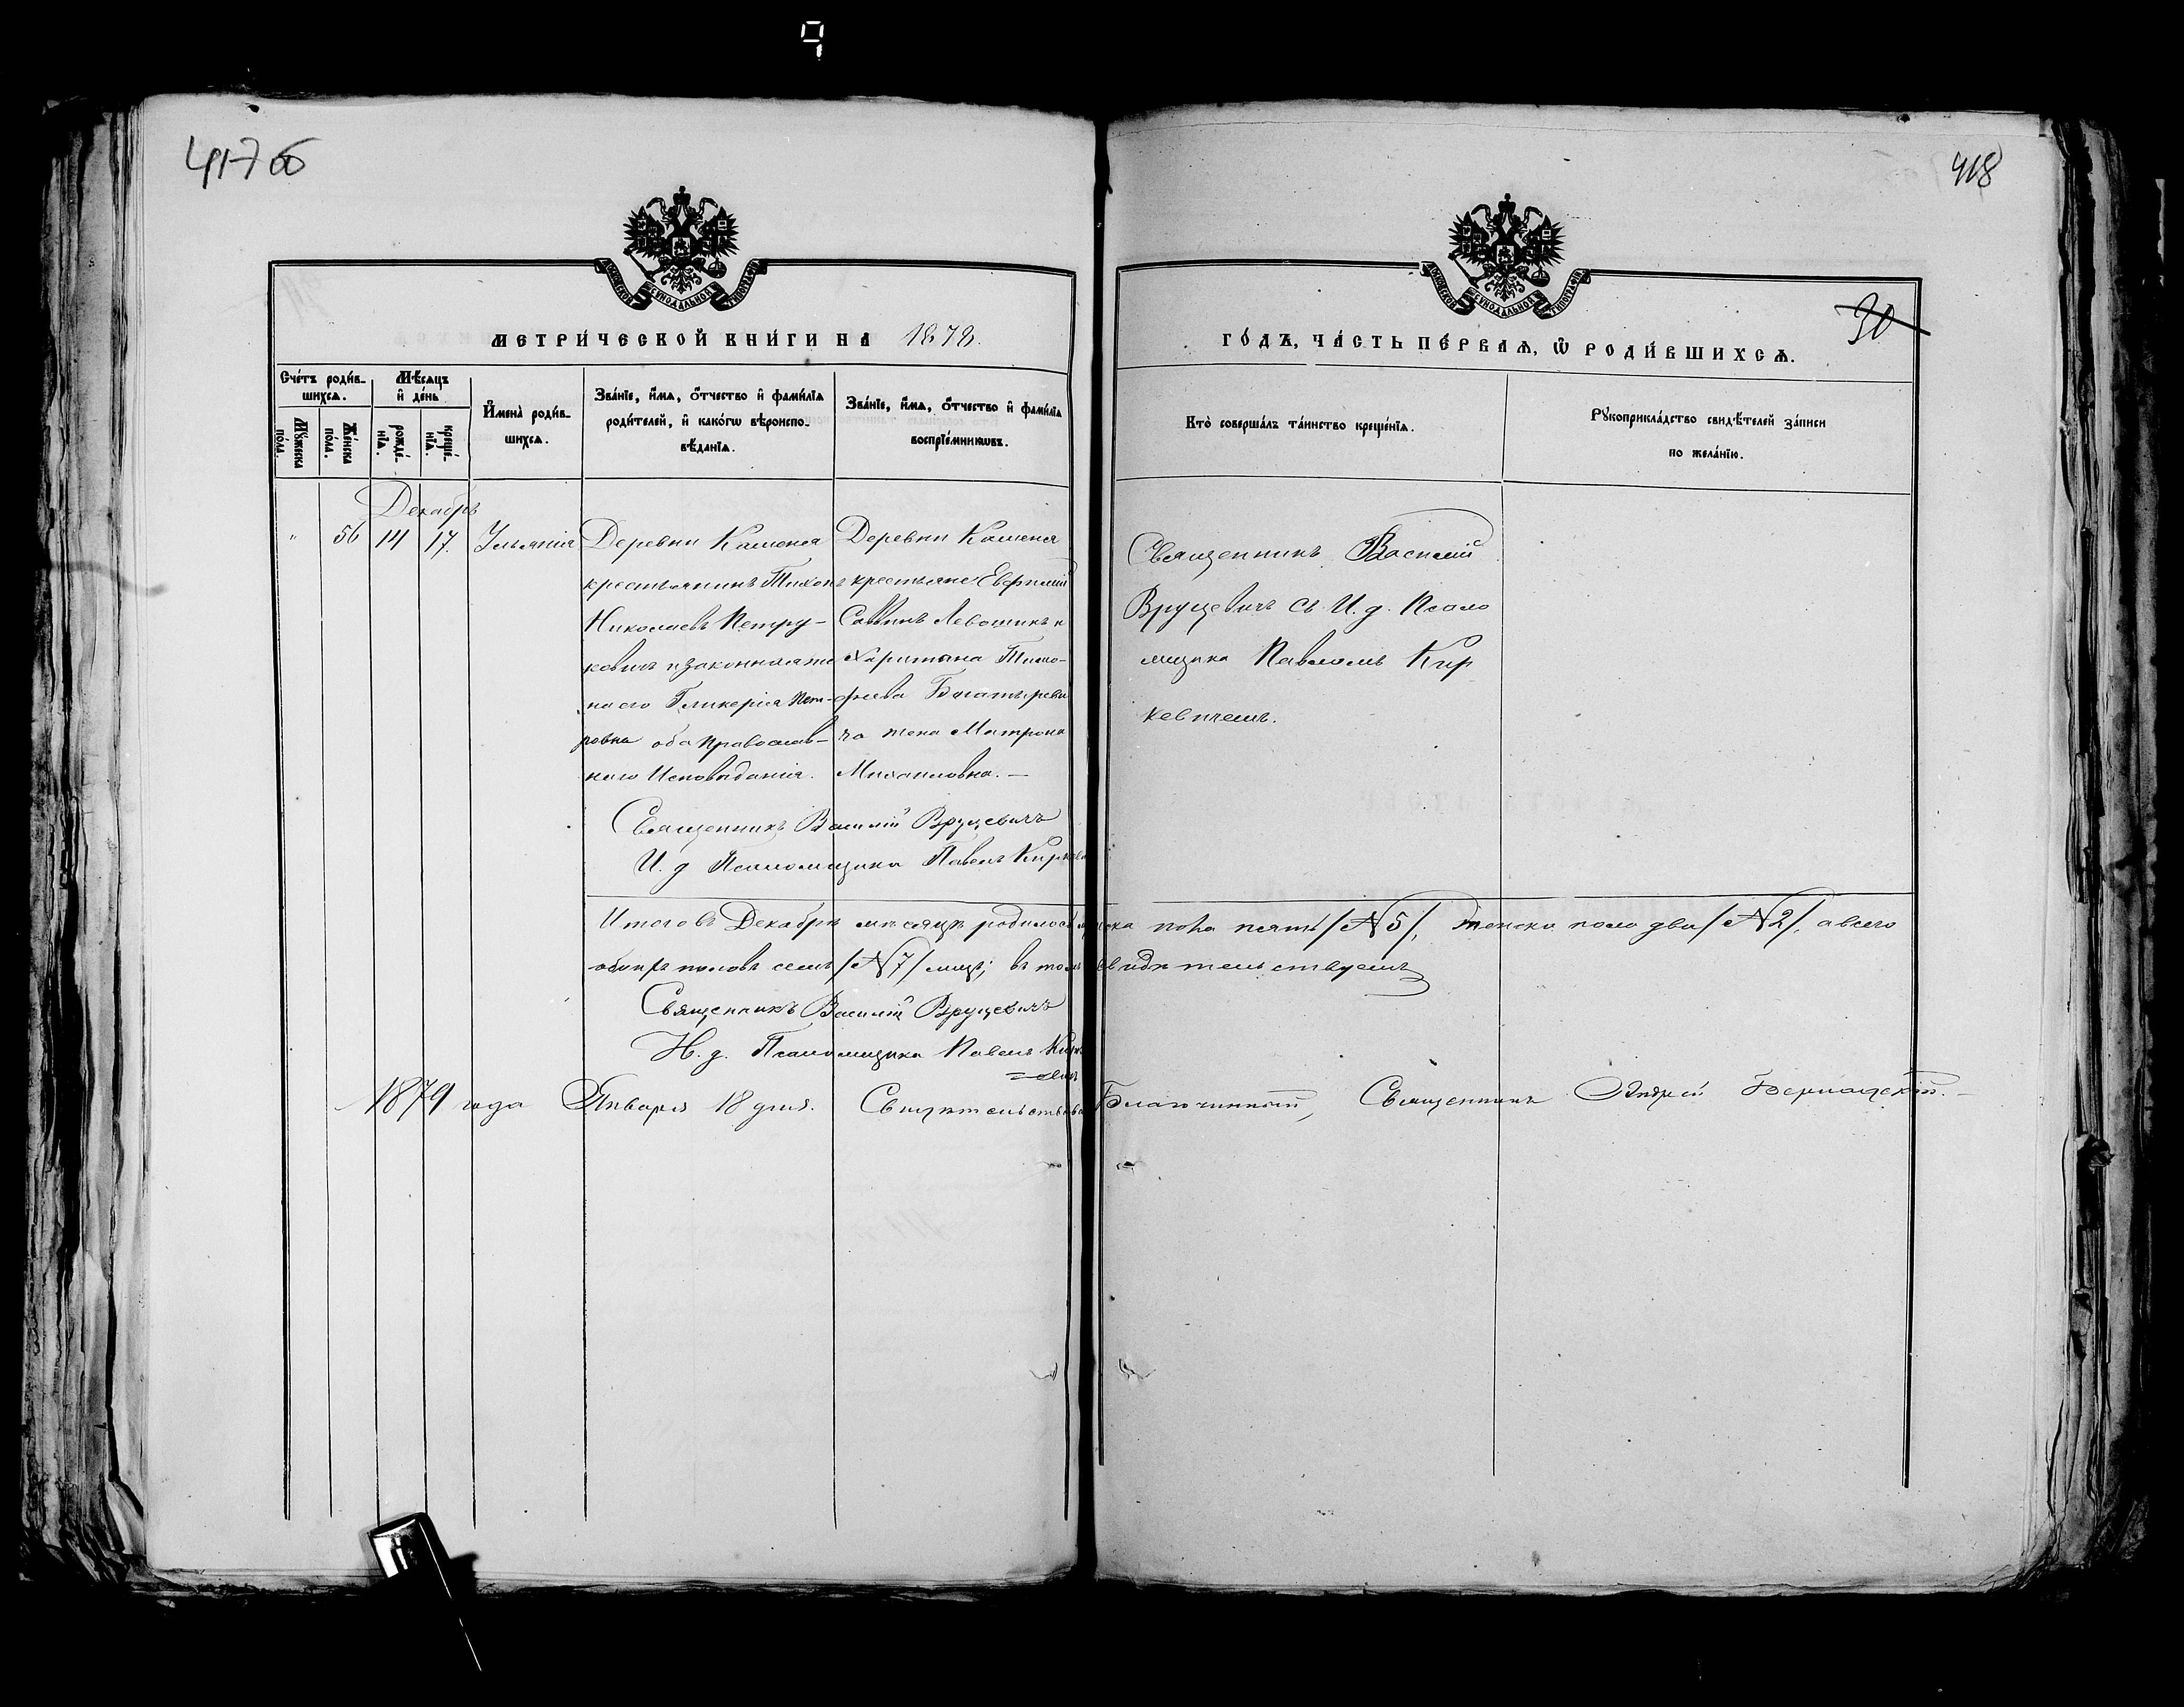 417 об
418
МОСКОВСКОЙ СѴНОДАЛЬНОЙ ТИПОГРАФІИ
МОСКОВСКОЙ СѴНОДАЛЬНОЙ ТИПОГРАФІИ
30
МЕТРИ́ЧЕСКОЙ КНИ́ГИ НА 1878.
ГО́ДЪ, ЧА́СТЬ ПЕ́РВАѦ, Ѡ҆ РОДИ́ВШИХСѦ.
Сче́тъ роди́в-
шихсѧ.
Мꙋ́жеска по́ла.
Же́нска по́ла.
Мѣ́сѧцъ
и҆ де́нь
рожде́-
нїѧ.
креще́-
нїѧ.
И҆мена̀ роди́в-
шихсѧ.
Зва́нїе, и҆́мѧ, ѻ҆́тчество и҆ фами́лїѧ
роди́телей, и҆ како́гѡ вѣроиспо-
вѣ́данїѧ.
Зва́нїе, и҆́мѧ, ѻ҆́тчество и҆ фами́лїѧ
воспрїе́мникѡвъ.
Кто̀ соверша́лъ та́инство креще́нїѧ.
Рꙋкоприкла́дство свидѣ́телей за́писи
по жела́нїю.
Декабрь
" 56 14 17. Ульянія
Деревни Каменя
крестьянинъ Тихонъ
Николаевъ Петру-
кевичъ и законная же
на его Гликерія Пет-
ровна оба православ-
наго Исповѣданія.
Деревни Каменя
крестьяне Евфимій
Саввинъ Левошикъ и
Харитона Тимо-
феева Богатырева
ча жена Матрона
Михаиловна. —
Священникъ Василій
Вруцевичъ съ И. д. Псало
мщика Павломъ Кир
кевичемъ.
Священникъ Василій Вруцевичъ
И. д Псаломщика Павелъ Киркев
Итого въ Декабрѣ мѣсяцѣ родилось мужска пола пять /№5/, женска пола два /№2/, а всего
обоихъ половъ семь /№7/ лицъ; въ томъ свидѣтельствуемъ
Священникъ Василій Вруцевичъ
И. д. Псаломщика Павелъ Кирк
=евичъ
1879 года Января 18 дня. Свидѣтельствовалъ Благочинный, Священникъ Андрей